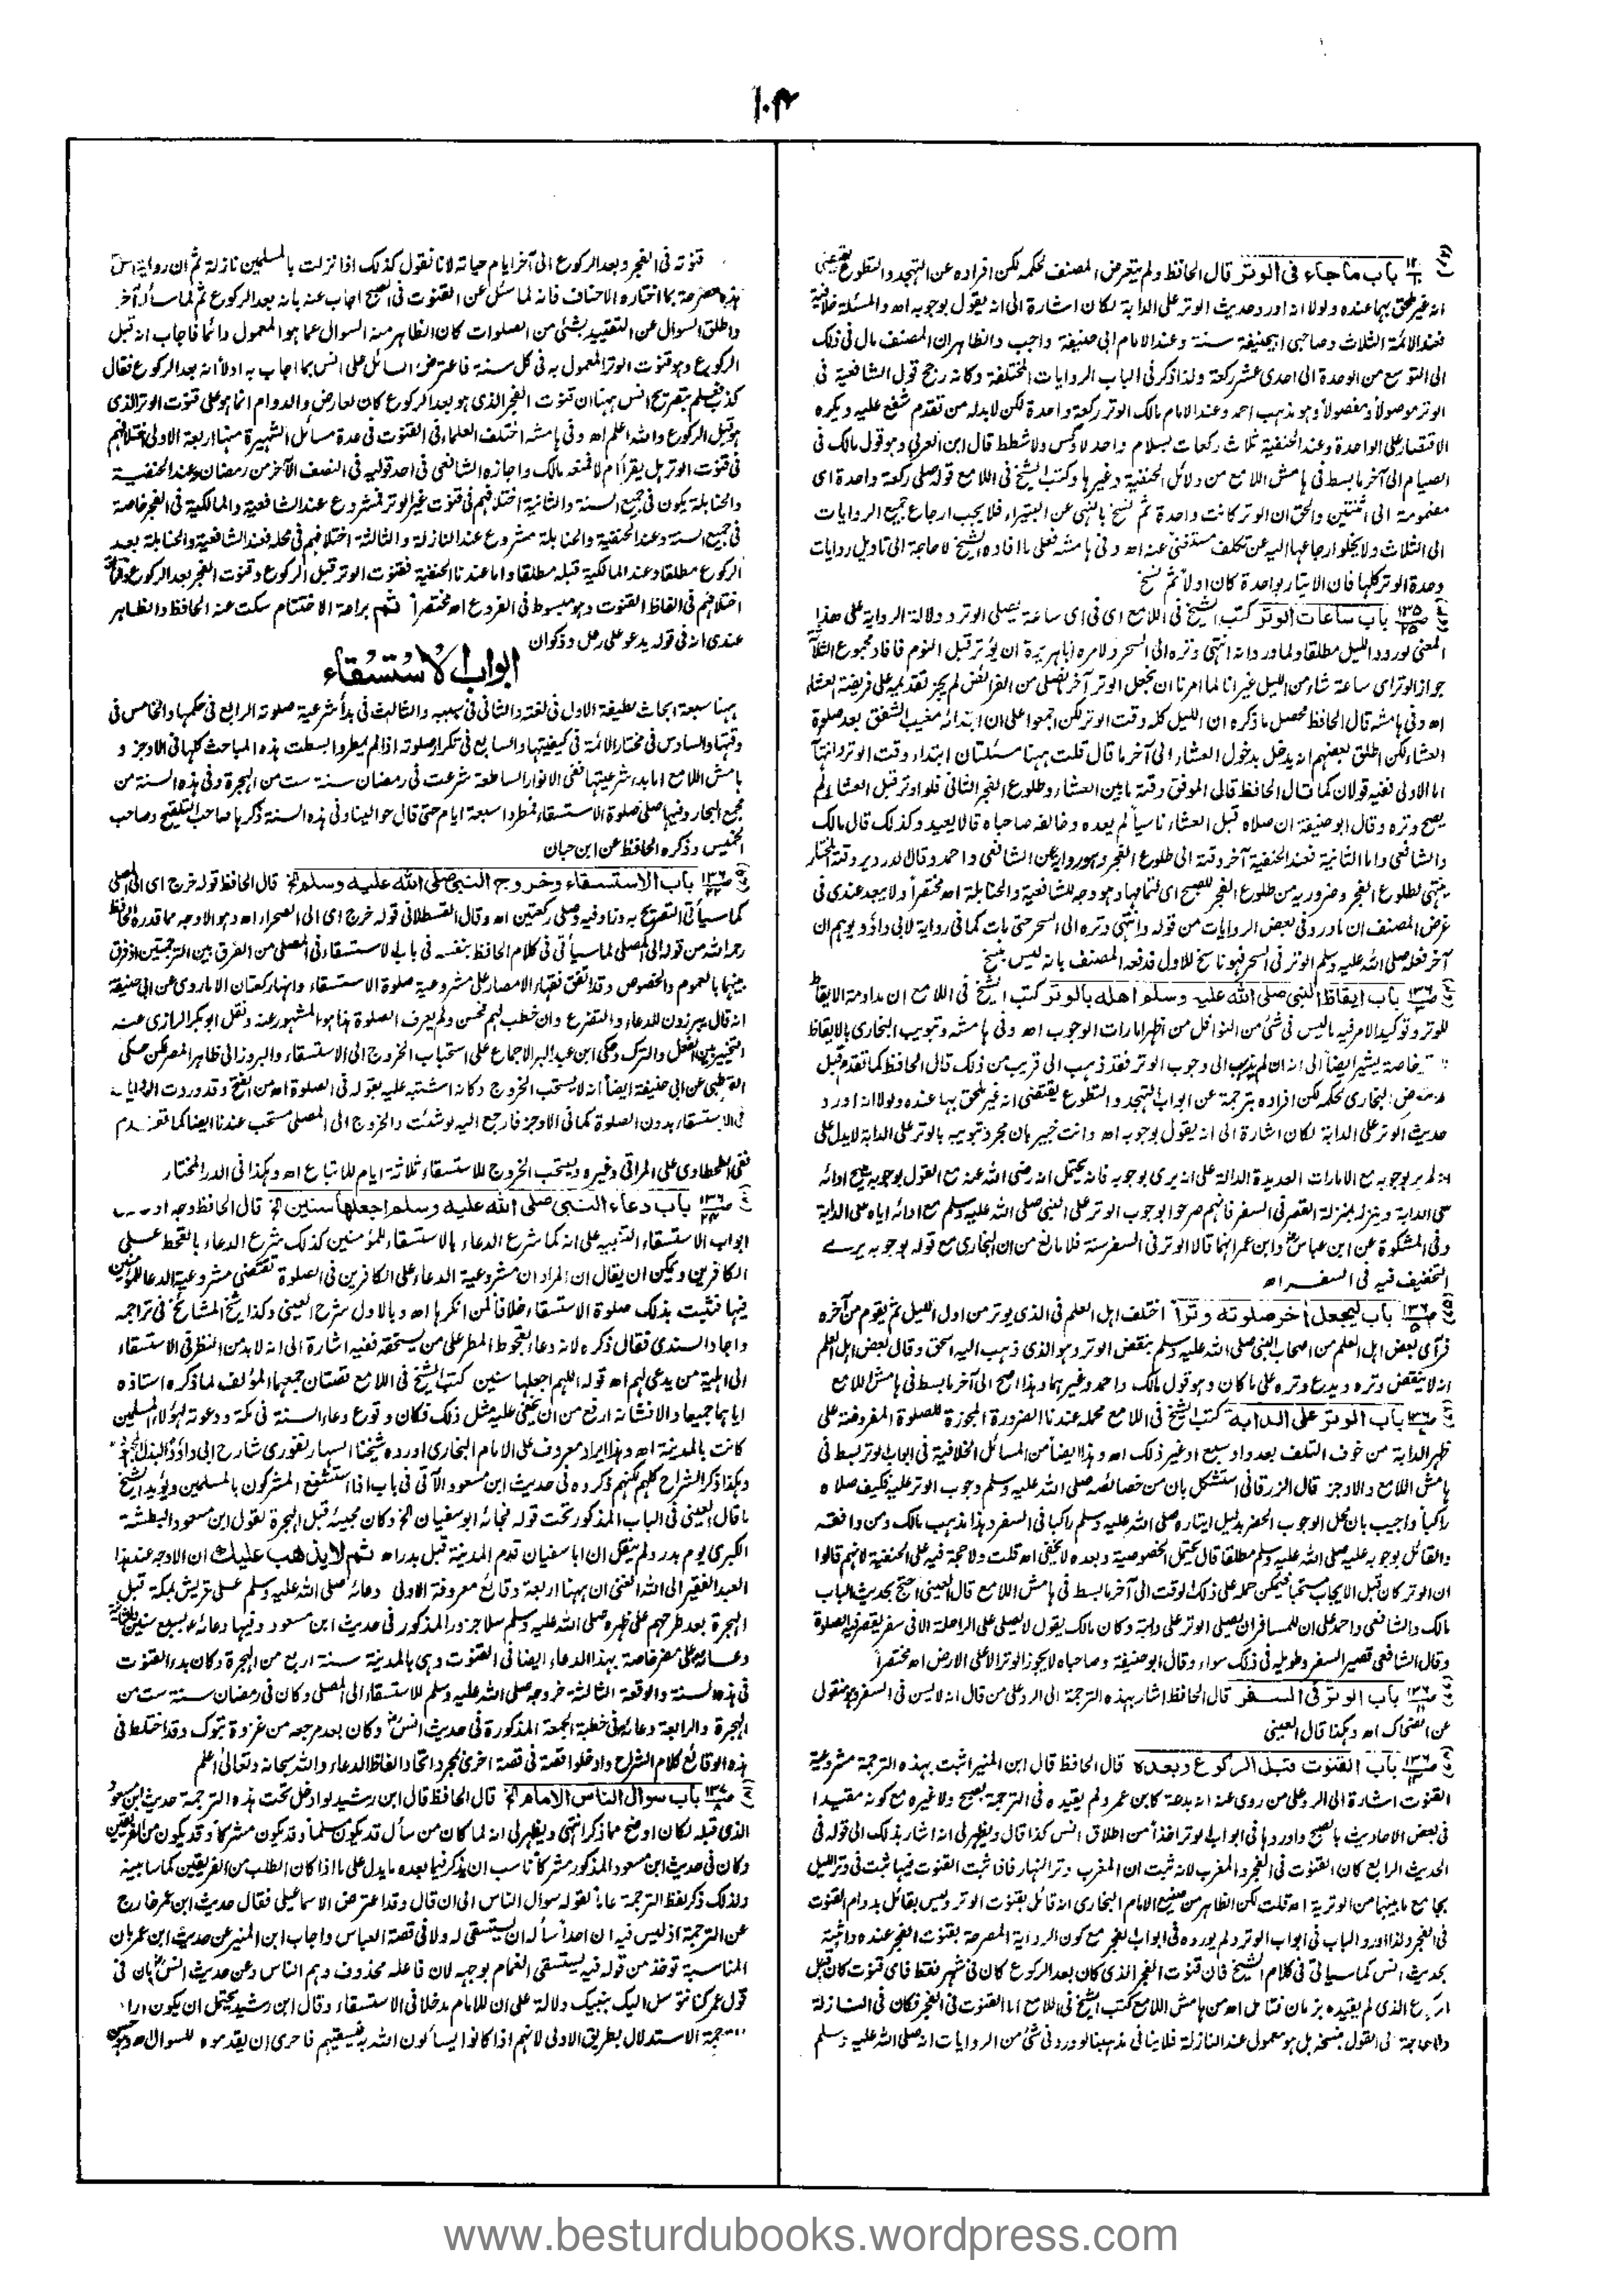 ۱۰۴
باب ما جاء فى الوتر قال الحافظ ولم يتعرض المصنف لحكمه لكن افراده عن التهجد والتطوع يقتضى
انه غير ملحق بها عنده ولولا انه اورد حديث الوتر على الدابة لكان اشارة الى انه يقول بوجوبه اھ والمسئلة خلافية
فعند الائمة الثلاث وصاحبى ابيحنيفة سنة وعند الامام ابى حنيفة واجب والظاهر ان المصنف مال فى ذلك
الى التوسع من الوحدة الى احدى عشر ركعة ولذا ذكر فى الباب الروايات المختلفة وكانه رجح قول الشافعية فى
الوتر موصولاً ومفصولاً وهو مذهب احمد وعند الامام مالك الوتر ركعة واحدة لكن لابد له من تقدم شفع عليه ويكره
الاقتصار على الواحدة وعند الحنفية ثلاث ركعات بسلام واحد لا وكس ولا شطط قال ابن العربي وهو قول مالك فى
الصيام الى آخر ما بسط فى هامش اللامع من دلائل الحنفية وغيرها وكتب الشيخ فى اللامع قوله صلى ركعة واحدة اى
مضمومة الى اثنتين والحق ان الوتر كانت واحدة ثم نسخ بالنهى عن البتيراء فلا يجب ارجاع جميع الروايات
الى الثلاث ولا يخلو ارجاعها اليه عن تكلف مستغنى عنه اھ وفى هامشه فعلى ما افاده الشيخ لا حاجة الى تاويل روايات
وحدة الوتر كلها فان الايتار بواحدة كان اولاً ثم نسخ
باب ساعات الوتر كتب الشيخ فى اللامع اى فى اى ساعة يصلى الوتر و دلالة الرواية على هذا
المعنى لورود الليل مطلقا ولما ورد انه انتهى وتره الى السحر ولامره اباهريرة ان يؤتر قبل النوم فافاد مجموع
جواز الوتر اى ساعة شاء من الليل غير انا لما امرنا ان نجعل الوتر آخر ما نصلى من الفرائض لم يجز تقديمه على فريضة العشاء
اھ وفى هامشه قال الحافظ محصل ما ذكره ان الليل كله وقت الوتر لكن اجمعوا على ان ابتدائه مغيب الشفق بعد صلوة
العشاء لكن اطلق بعضهم انه يدخل بدخول العشاء الى آخر ما قال قلت ههنا مسئلتان ابتداء وقت الوتر وانتهاء
اما الاولى ففيه قولان كما قال الحافظ قال الموفق وقته ما بين العشاء وطلوع الفجر الثانى فلو اوتر قبل العشاء لم
يصح وتره وقال ابو حنيفة ان صلاه قبل العشاء ناسياً لم يعده وخالفه صاحباه فقالا يعيد وكذلك قال مالك
والشافعى واما الثانية فعند الحنفية آخر وقته الى طلوع الفجر وهو رواية عن الشافعى واحمد وقال الدردير وقته المختار
ينتهى لطلوع الفجر وضروريه من طلوع الفجر للصبح اى لتمامها وهو وجه للشافعية والحنابلة اھ مختصراً ولا يبعد عندى فى
غرض المصنف ان ما ورد فى بعض الروايات من قوله وانتهى وتره الى السحر حتى مات كما فى رواية لابى داؤد يوهم ان
آخر فعله صلى الله عليه وسلم الوتر فى السحر فهو ناسخ للاول فدفعه المصنف بانه ليس بنسخ
باب ايقاظ النبي صلى الله عليه وسلم اهله بالوتر كتب الشيخ فى اللامع ان مداومة الايقاظ
للوتر وتوكيد الامر فيه ما ليس فى شئ من النوافل من اظهر امارات الوجوب اھ وفى هامشه وتبويب البخارى بالايقاظ
خاصة يشير ايضاً الى انه ان لم يذهب الى وجوب الوتر فقد ذهب الى قريب من ذلك قال الحافظ كما تقدم قبل
البخارى لحكمه لكن افراده بترجمة عن ابواب التهجد والتطوع يقتضى انه غير ملحق بها عنده ولولا انه اورد
حديث الوتر على الدابة لكان اشارة الى انه يقول بوجوبه اھ وانت خبير بان مجرد تبويبه بالوتر على الدابة لا يدل على
انه لم ير بوجوبه مع الامارات العديدة الدالة على انه يرى بوجوبه فانه يحتمل انه رضى الله عنه مع القول بوجوبه يبيح ادائه
على الدابة وينزله بمنزلة القصر فى السفر فانهم صرحوا بوجوب الوتر على النبي صلى الله عليه وسلم مع ادائه اياه على الدابة
وفى المشكوة عن ابن عباس وابن عمر انهما قالا الوتر فى السفر سنة فلا مانع من ان البخارى مع قوله بوجوبه يرى
التخفيف فيه فى السفر اھ
باب ليجعل اخر صلوته وتراً اختلف اهل العلم فى الذى يوتر من اول الليل ثم يقوم من آخره
فرأى بعض اهل العلم من اصحاب النبي صلى الله عليه وسلم بنقض الوتر وهو الذى ذهب اليه اسحق وقال بعض اهل العلم
انه لا ينقض وتره ويدع وتره على ما كان وهو قول مالك واحمد وغيرهما وهذا اصح الى آخر ما بسط فى هامش اللامع
باب الوتر على الدابة كتب الشيخ فى اللامع محله عندنا الضرورة المجوزة للصلوة المفروضة على
ظهر الدابة من خوف التلف بعدو او سبع او غير ذلك اھ وهذا ايضاً من المسائل الخلافية فى ابواب الوتر بسط فى
هامش اللامع والاوجز قال الزرقانى استشكل بان من خصائصه صلى الله عليه وسلم وجوب الوتر عليه فكيف صلاه
راكباً واجيب بان محل الوجوب الحضر بدليل ايتاره صلى الله عليه وسلم راكبا فى السفر وهذا مذهب مالك ومن وافقه
والقائل بوجوبه عليه صلى الله عليه وسلم مطلقا قال يحتمل الخصوصية وبعده لا يخفى اھ قلت ولا حجة فيه على الحنفية لانهم قالوا
ان الوتر كان قبل الايجاب مستحبا فيمكن حمله على ذلك الوقت الى آخر ما بسط فى هامش اللامع قال العينى احتج بحديث الباب
مالك والشافعى واحمد على ان للمسافر ان يصلى الوتر على دابة وكان مالك يقول لا يصلى على الراحلة الا فى سفر يقصر فيه الصلوة
وقال الشافعى قصير السفر وطويله فى ذلك سواء وقال ابو حنيفة وصاحباه لا يجوز الوتر الا على الارض اھ مختصراً
باب الوتر فى السفر قال الحافظ اشار بهذه الترجمة الى الرد على من قال انه لا يسن فى السفر وهو منقول
عن الضحاك اھ وهكذا قال العينى
باب القنوت قبل الركوع وبعده قال الحافظ قال ابن المنير اثبت بهذه الترجمة مشروعية
القنوت اشارة الى الرد على من روى عنه انه بدعة كابن عمر ولم يقيده فى الترجمة بصبح ولا غيره مع كونه مقيدا
فى بعض الاحاديث بالصبح واوردها فى ابواب الوتر اخذاً من اطلاق انس كذا قال ويظهر لى انه اشار بذلك الى قوله فى
الحديث الرابع كان القنوت فى الفجر والمغرب لانه ثبت ان المغرب وتر النهار فاذا ثبت القنوت فيها ثبت فى وتر الليل
بجامع ما بينهما من الوترية اھ قلت لكن الظاهر من صنيع الامام البخارى انه قائل بقنوت الوتر وليس بقائل بدوام القنوت
فى الفجر ولذا اورد الباب فى ابواب الوتر ولم يورده فى ابواب الفجر مع كون الرواية المصرحة بقنوت الفجر عنده
بحديث انس كما سيأتى فى كلام الشيخ فان قنوت الفجر الذى كان بعد الركوع كان فى شهر فقط فاى قنوت كان قبل
الركوع الذى لم يقيده بزمان فتامل اھ من هامش اللامع كتب الشيخ فى اللامع اما القنوت فى الفجر فكان فى النازلة
ولا حاجة الى القول بنسخه بل هو معمول عند النازلة فلا ينافى مذهبنا لو ورد فى شئ من الروايات انه صلى الله عليه وسلم
قنوته فى الفجر وبعد الركوع الى آخر ايام حياته لانا نقول كذلك اذا نزلت بالمسلمين نازلة ثم ان رواية انس
هذه مصرحة بما اختاره الاحناف فانه لما سئل عن القنوت فى الصبح اجاب عنه بانه بعد الركوع ثم لما سأله آخر
واطلق السوال عن التقييد بشئ من الصلوات كان الظاهر منه السوال عما هو المعمول دائما فاجاب انه قبل
الركوع وهو قنوت الوتر المعمول به فى كل سنة فاعترض السائل على انس بما اجاب به اولاً انه بعد الركوع فقال
كذب فعلم بتصريح انس ههنا ان قنوت الفجر الذى هو بعد الركوع كان لعارض والدوام انما هو على قنوت الوتر الذى
هو قبل الركوع والله اعلم اھ وفى هامشه اختلف العلماء فى القنوت فى عدة مسائل الشهيرة منها اربعة الاولى اختلافهم
فى قنوت الوتر هل يقرأ ام لا فمنعه مالك واجازه الشافعى فى احد قوليه فى النصف الآخر من رمضان وعند الحنفية
والحنابلة يكون فى جميع السنة والثانية اختلافهم فى قنوت غير الوتر فمشروع عند الشافعية والمالكية فى الفجر خاصة
فى جميع السنة وعند الحنفية والحنابلة مشروع عند النازلة والثالثة اختلافهم فى محله فعند الشافعية والحنابلة بعد
الركوع مطلقا وعند المالكية قبله مطلقا واما عندنا الحنفية فقنوت الوتر قبل الركوع وقنوت الفجر بعد الركوع
اختلافهم فى الفاظ القنوت وهو مبسوط فى الفروع اھ مختصراً ثم براعة الاختتام سكت عنه الحافظ والظاهر
عندى انه فى قوله يدعو على رعل وذكوان
ابواب الاستسقاء
ههنا سبعة ابحاث لطيفة الاول فى لغته والثانى فى سببه والثالث فى بدأ شرعية صلوته الرابع فى حكمها والخامس فى
وقتها والسادس فى مختار الائمة فى كيفيتها والسابع فى تكرار صلوته اذا لم يمطروا بسطت هذه المباحث كلها فى الاوجز و
هامش اللامع اما بدء شرعيتها ففى الانوار الساطعة شرعت فى رمضان سنة ست من الهجرة وفى هذه السنة من
مجمع البحار وفيها صلى صلوة الاستسقاء فمطروا سبعة ايام حتى قال حوالينا وفى هذه السنة ذكرها صاحب التلقيح وصاحب
الخميس وذكره الحافظ عن ابن حبان
باب الاستسقاء وخروج النبى صلى الله عليه وسلم الخ قال الحافظ قوله خرج اى الى المصلى
كما سيأتى التصريح به وزاد فيه وصلى ركعتين اھ وقال القسطلانى قوله خرج اى الى الصحراء اھ وهو الاوجه مما قدره الحافظ
رحمه الله من قوله الى المصلى لما سيأتى فى كلام الحافظ بنفسه فى باب الاستسقاء فى المصلى من الفرق بين الترجمتين اذ فرق
بينهما بالعموم والخصوص وقد اتفق فقهاء الامصار على مشروعية صلوة الاستسقاء وانها ركعتان الا ما روى عن ابى حنيفة
انه قال يبرزون للدعاء والتضرع وان خطب لهم فحسن ولم يعرف الصلوة هذا هو المشهور عنه ونقل ابو بكر الرازى عنه
التخيير بين الفعل والترك وحكى ابن عبد البر الاجماع على استحباب الخروج الى الاستسقاء والبروز الى ظاهر المصر لكن حكى
القرطبى عن ابى حنيفة ايضاً انه لا يستحب الخروج وكانه اشتبه عليه بقوله فى الصلوة اھ من الفتح وقد وردت الروايات
فى الاستسقاء بدون الصلوة كما فى الاوجز فارجع اليه لو شئت والخروج الى المصلى مستحب عندنا ايضا كما تقدم
ففى الطحطاوى على المراقى وغيره ويستحب الخروج للاستسقاء ثلاثة ايام للاتباع اھ وهكذا فى الدر المختار
باب دعاء النبى صلى الله عليه وسلم اجعلها سنين الخ قال الحافظ وجه
ابواب الاستسقاء التنبيه على انه كما شرع الدعاء بالاستسقاء للمؤمنين كذلك شرع الدعاء بالقحط على
الكافرين ويمكن ان يقال ان المراد ان مشروعية الدعاء على الكافرين فى الصلوة تقتضى مشروعية الدعاء للمؤمنين
فيها فثبت بذلك صلوة الاستسقاء خلافا لمن انكرها اھ وبالاول شرح العينى وكذا شيخ المشائخ فى تراجمه
واجاد السندى فقال ذكره لانه دعاء بقحوط المطر على من يستحقه ففيه اشارة الى انه لابد من النظر فى الاستسقاء
الى اهلية من يدعى لهم اھ قوله اللهم اجعلها سنين كتب الشيخ فى اللامع قصتان جمعها المؤلف لما ذكره استاذه
اياهما جميعا والا فشانه ارفع من ان يخفى عليه مثل ذلك فكان وقوع دعاء السنة فى مكة ودعوته لهؤلاء المسلمين
كانت بالمدينة اھ وهذا ايراد معروف على الامام البخارى اورده شيخنا السهارنفورى شارح ابى داؤد البذل
وهكذا ذكر الشراح كلهم لكنهم ذكروه فى حديث ابن مسعود الآتى فى باب اذا استشفع المشركون بالمسلمين ويؤيد الشيخ
ما قال العينى فى الباب المذكور تحت قوله فجائه ابو سفيان الخ وكان مجيئه قبل الهجرة لقول ابن مسعود البطشة
الكبرى يوم بدر ولم ينقل ان ابا سفيان قدم المدينة قبل بدر اھ ثم لا يذهب عليك ان الاوجه عند هذا
العبد الفقير الى الله الغنى ان ههنا اربعة وقائع معروفة الاولى دعائه صلى الله عليه وسلم على قريش بمكة قبل
الهجرة بعد طرحهم على ظهره صلى الله عليه وسلم سلا جزور المذكور فى حديث ابن مسعود وفيها دعائه بسبع سنين والثانية
دعائه على مضر خاصة بهذا الدعاء ايضا فى القنوت وهى بالمدينة سنة اربع من الهجرة وكان بدء القنوت
فى هذه السنة والواقعة الثالثة خروجه صلى الله عليه وسلم للاستسقاء الى المصلى وكان فى رمضان سنة ست من
الهجرة والرابعة دعائه فى خطبة الجمعة المذكورة فى حديث انس وكان بعد مرجعه من غزوة تبوك وقد اختلط فى
هذه الوقائع كلام الشراح وادخلوا قصة فى قصة اخرى لمجرد اتحاد الفاظ الدعاء والله سبحانه وتعالى اعلم
باب سوال الناس الامام الخ قال الحافظ قال ابن رشيد لو ادخل تحت هذه الترجمة حديث ابن مسعود
الذى قبله لكان اوضح مما ذكر انتهى ويظهر لى انه لما كان من سأل قد يكون مسلماً وقد يكون مشركاً وقد يكون من الفريقين
وكان فى حديث ابن مسعود المذكور مشركاً ناسب ان يذكر فيما بعده ما يدل على ما اذا كان الطلب من الفريقين كما سابينه
ولذلك ذكر لفظ الترجمة عاماً لقوله سوال الناس الى ان قال وقد اعترض الاسماعيلى فقال حديث ابن عمر خارج
عن الترجمة اذ ليس فيه ان احدا سأله ان يستسقى له ولا فى قصة العباس واجاب ابن المنير عن حديث ابن عمر بان
المناسبة توخذ من قوله فيه يستسقى الغمام بوجهه لان فاعله محذوف وهم الناس وعن حديث انس بان فى
قول عمر كنا نتوسل اليك بنبيك دلالة على ان للامام مدخلا فى الاستسقاء وقال ابن رشيد يحتمل ان يكون اراد
الاستدلال بطريق الاولى لانهم اذا كانوا يسألون الله به فيسقيهم فاحرى ان يقدموه للسوال اھ وهو حسن
www.besturdubooks.wordpress.com